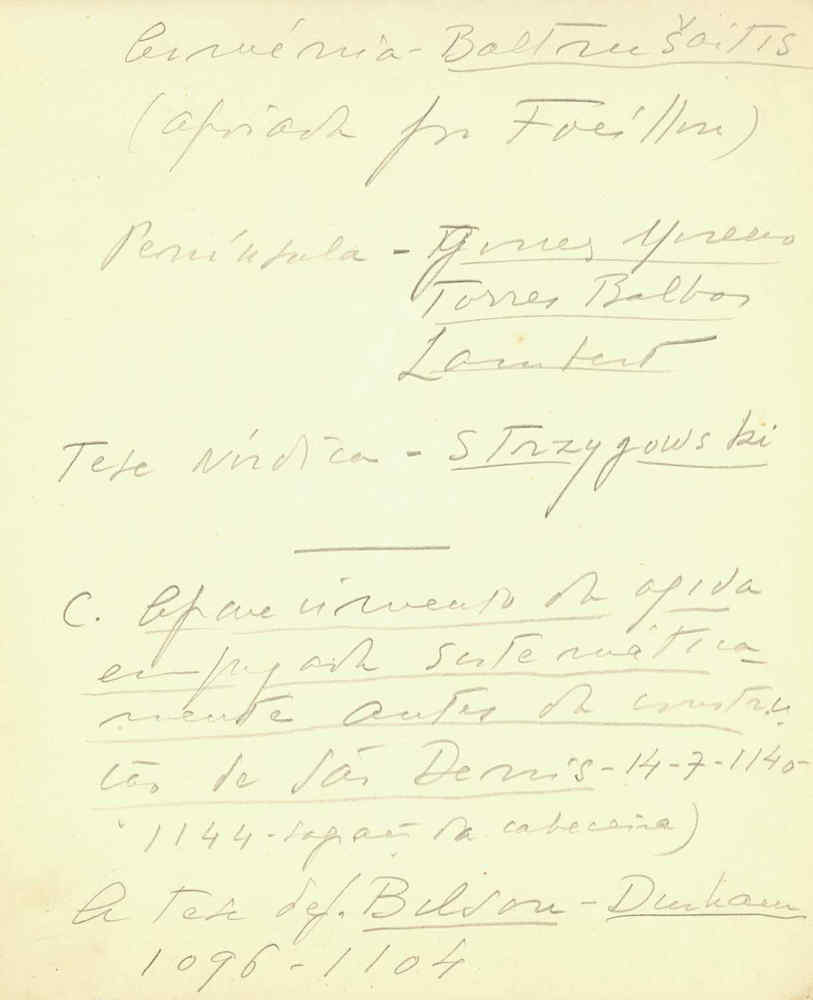 Arménia - Baltrušaitis
(apoiada por Focillon)
Península - Gomez Moreno
Torres Balbas
Lambert
Tese Nórdica - Strzygowski
C. Aparecimento da ogiva
empregada sistemática-
mente antes da constru-
ção de São Denis - 14-7-1140-
1144 - sagração da cabeceira)
A tese def. Bilson - Durham
1096 - 1104